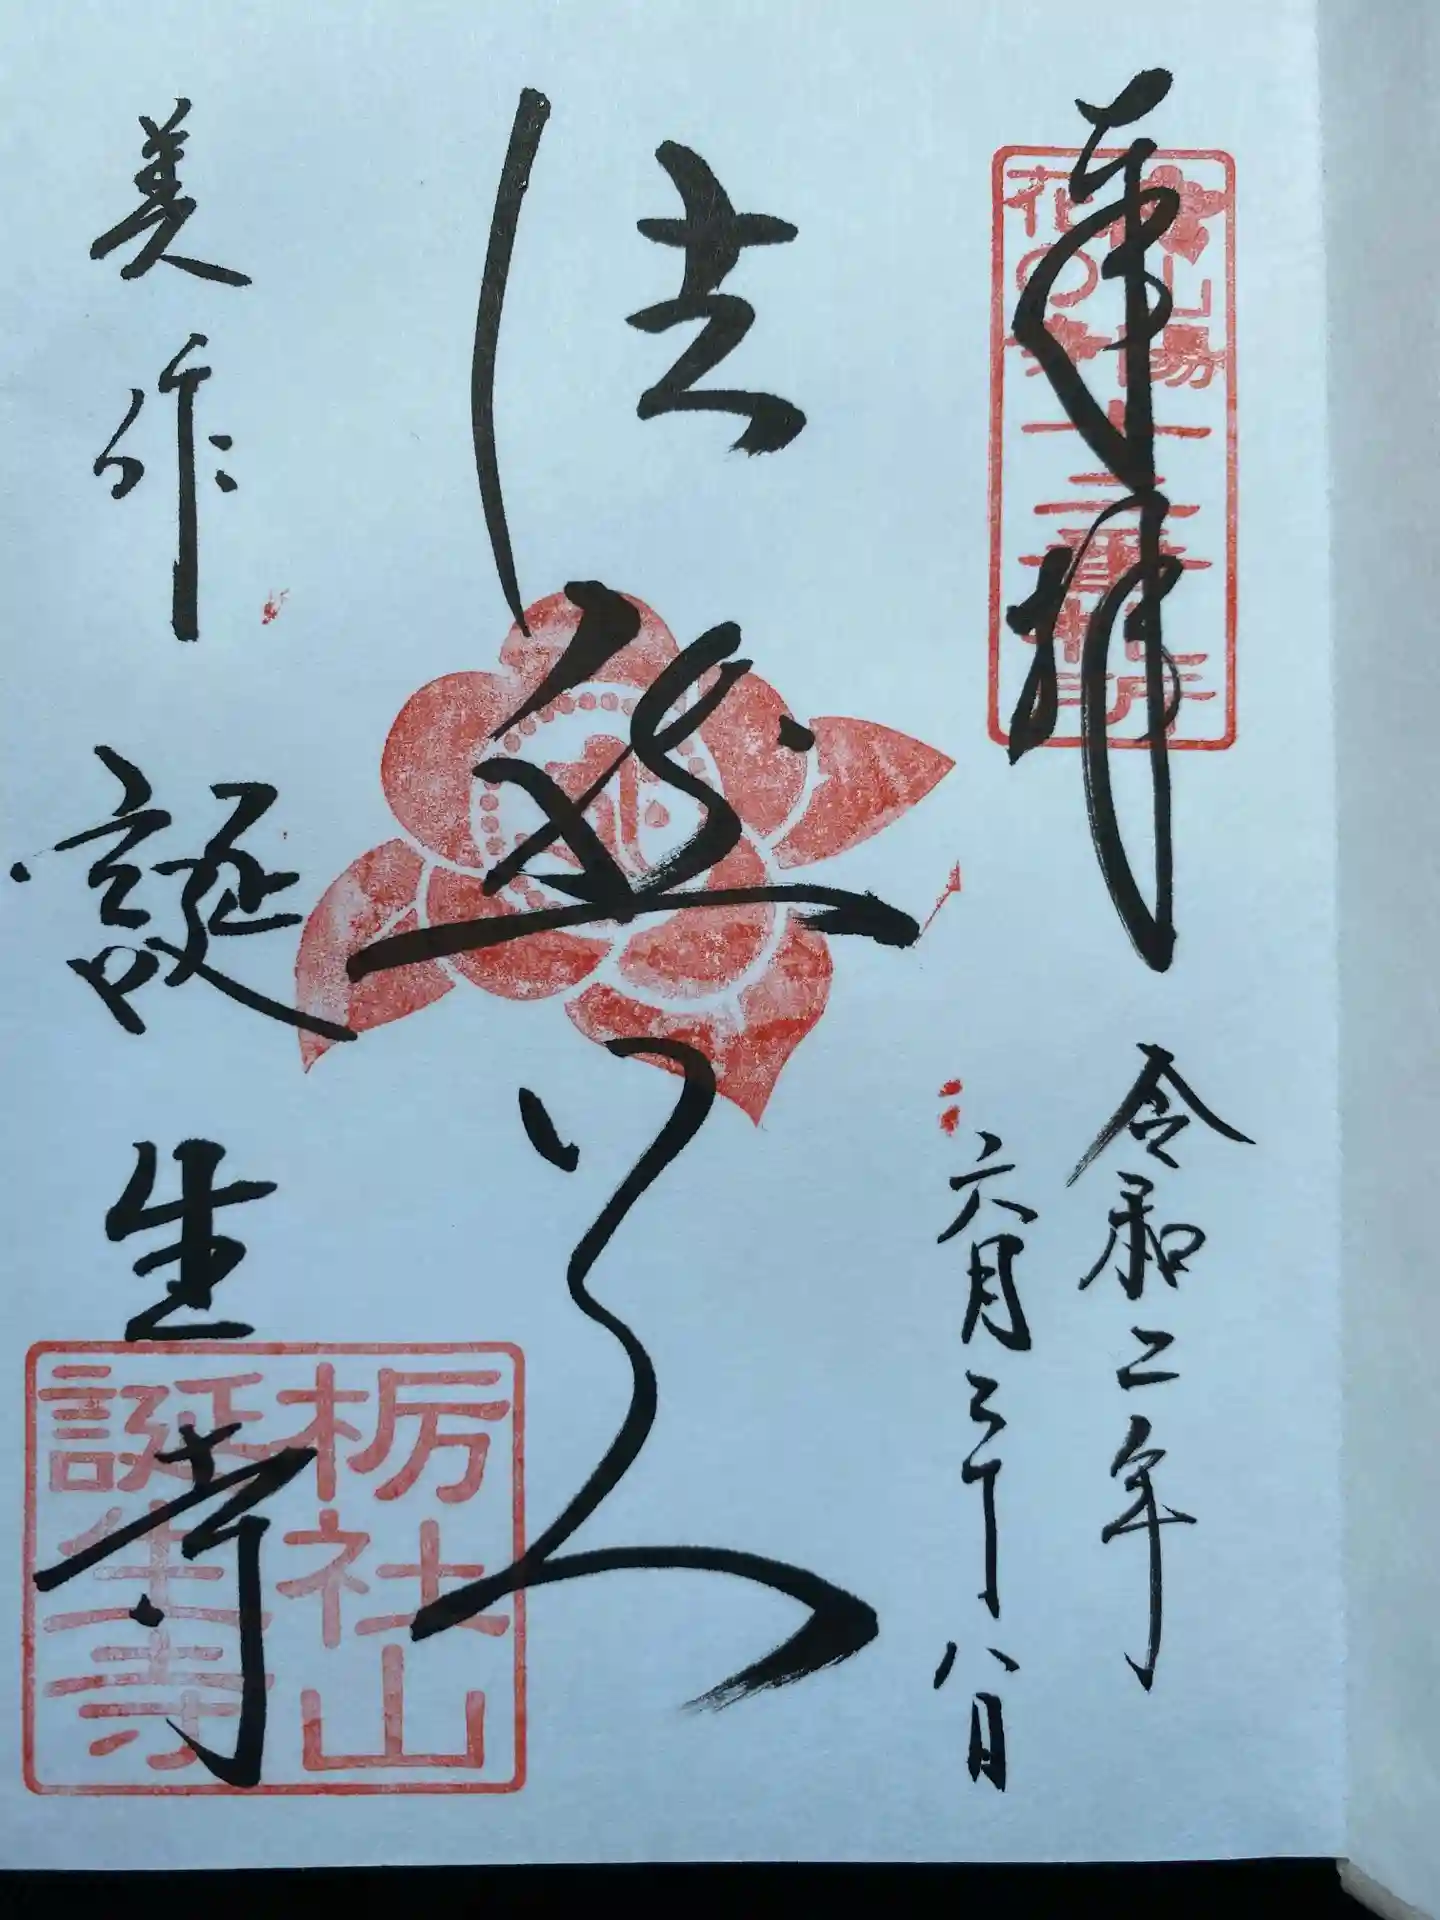 奉拝
令和二年
六月二十八日
山陽
花の寺
十二番札所
法然上人
美作
誕生寺
栃社山
誕生寺